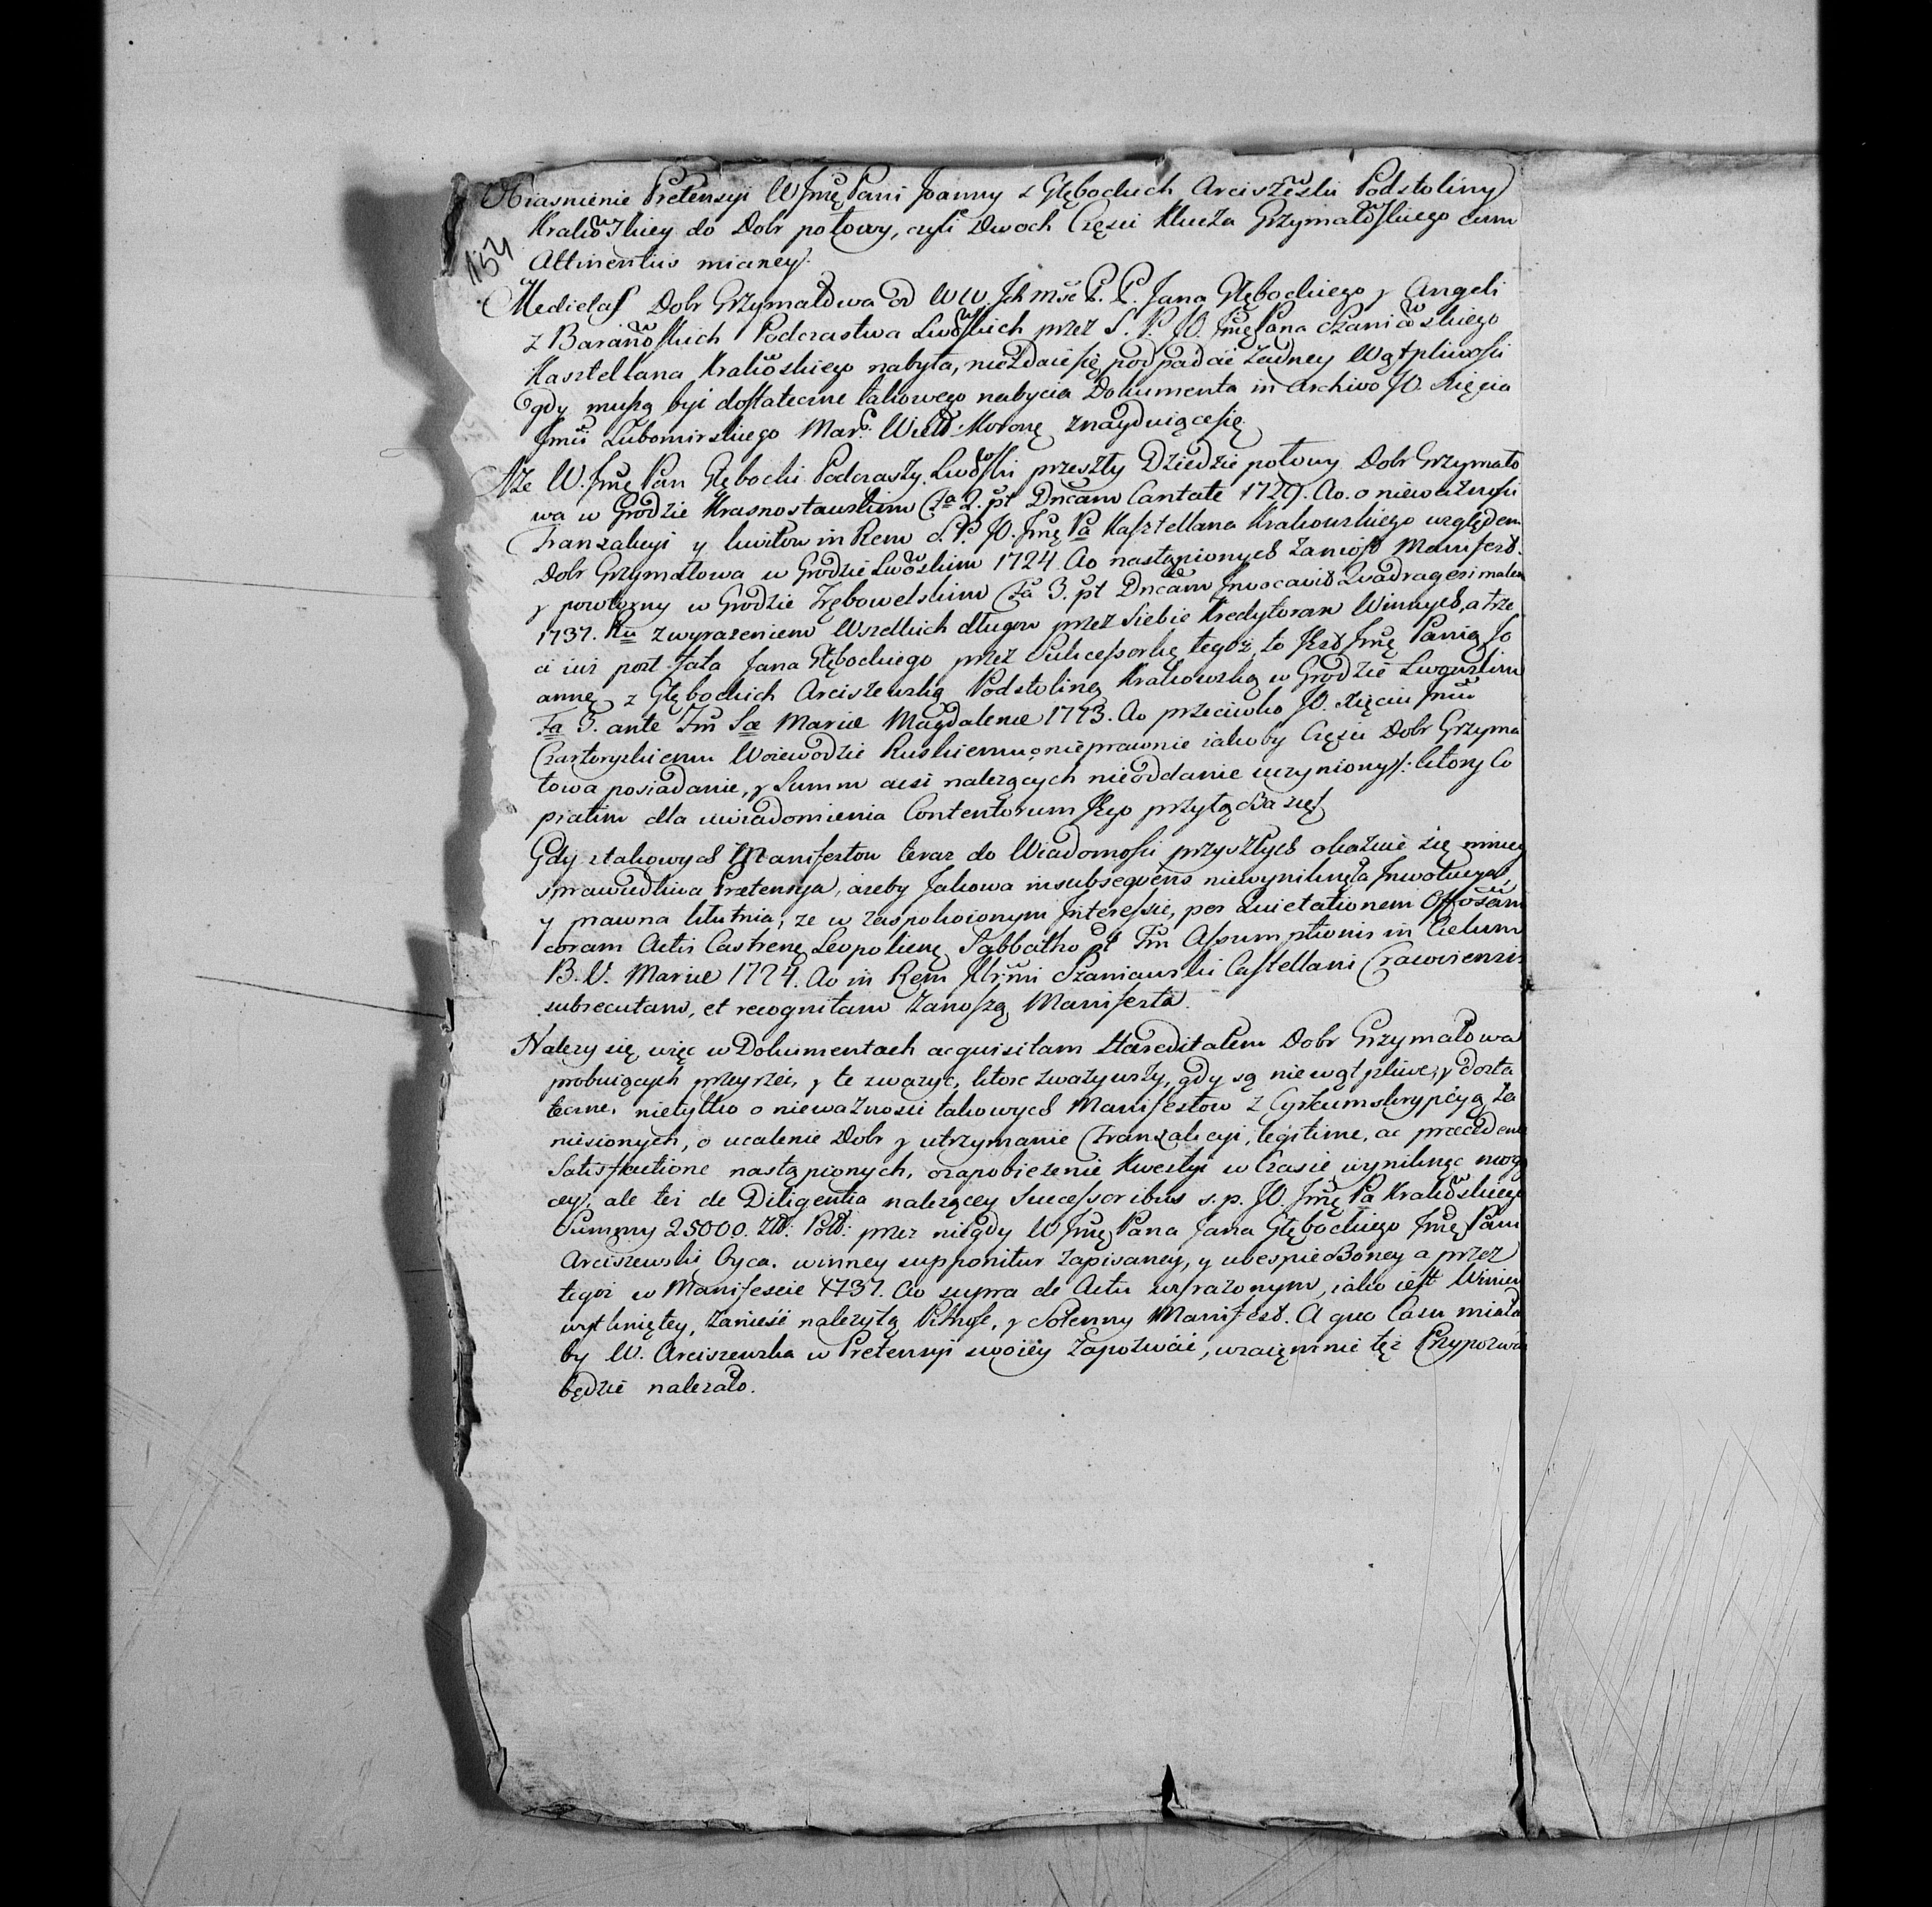 Obiasnienie Pretensyi W Jmę Pani Joanny z Głębockich Arciszewski Podstoliny
Krakowskiey do Dobr połowy, czyli Dwoch Częsci Klucza Grzymałowskiego cum
154
Attinentiis mianey.
Medietas Dobr Grzymałowa od WW. Ich Mśc P. P. Jana Głębockiego y Angeli
z Baranowskich Podczastwa Lwowskich przez S. P. JO. Jmę Pana Szaniawskiego
Kasztellana Krakowskiego nabyta, niezdaie się podpadać żadney Wątpliwości
gdy muszą byż dostateczne takowego nabycia Dokumenta in Archivo JO. Xięcia
Jmći Lubomirskiego Mar: Wielk: Koronę znayduiące się.
Aże W. Jmę Pan Głębocki Podczaszy Lwowski przeszły Dziedzic połowy Dobr Grzymało
wa w Grodzie Krasnostawskim Fa 2. pt Dncam Cantate 1729. Ao. o nieważności
Tranzakcyi y kwitow in Rem S. P. JO. Jmę Pa Kasztellana Krakowskiego względem
Dobr Grzymałowa w Grodzie Lwowskim 1724. Ao nastąpionych zaniosł Manifest.
y powtorny w Grodzie Trębowelskim Fa 3. pt Dncam Invocavit Quadragesimalem
1737. Ru z wyrażeniem Wszelkich długow przez Siebie Kredytorom Winnych, a trze
ci iuż post fata Jana Głębockiego przez Sukcessorkę tegoż, to jest Jmę Panią Jo
annę z Głębockich Arciszewską Podstolinę Krakowską w Grodzie Lwowskim
Fa 3. ante Fm Sæ Mariæ Magdalenæ 1773. Ao przeciwko JO. Xięciu Jmći
Czartoryskiemu Woiewodzie Ruskiemu, o nieprawnie iakoby Części Dobr Grzyma
łowa posiadanie, y Summ ac si należących nieoddanie uczyniony: ktory Co
piatim dla uwiadomienia Contentorum Jego przyłącza się.
Gdy z takowych Manifestow teraz do Wiadomości przyszłych okazuie się mniey
sprawiedliwa Pretensya, ażeby Jakowa in subsequens niewyniknęła Inwolucya
y prawna kłutnia, że w zaspokoionym Interessie, per Quietationem
coram Actis Castren Leopolien Sabbatho pt Fm Assumptionis in Cælum
B. V. Mariæ 1724. Ao in Rem Illrmi Szaniawski Castellani Cracoviensis
subsecutam, et recognitam zanoszą Manifesta.
Należy się więc w Dokumentach acquisitam Hæreditatem Dobr Grzymałowa
probuiących przeyrzeć, y te zważyć, ktore zważywszy, gdy są niewątpliwe, y dosta
teczne, nietylko o nieważności takowych Manifestow z Cyrkumskrypcyą za
niesionych, o ucalenie Dobr y utrzymanie Tranzakcyi, legitime, ac præcedente
Satisfactione nastąpionych, o zapobieżenie Kwestyi w Czasie wyniknąc mogą
cey, ale też de Diligentia należącey Successoribus s. p. JO. Jmę Pa Krakowskiego
Summy 25000. Złt: Pols: przez niegdy W Jmę Pana Jana Głębockiego Jmę Pani
Arciszewski Oyca. winney supponitur zapisaney, y ubespieczoney a przez
tegoż w Manifescie 1737. Ao supra de Actu wyrażonym, iako iest Winien
wytkniętey, zanieść należytą Pilność, y Solenny Manifest. A quo Casu miała
by W. Arciszewska w Pretensyi swoiey zapozwać, wzaiemnie też Przypozwać
będzie należało.